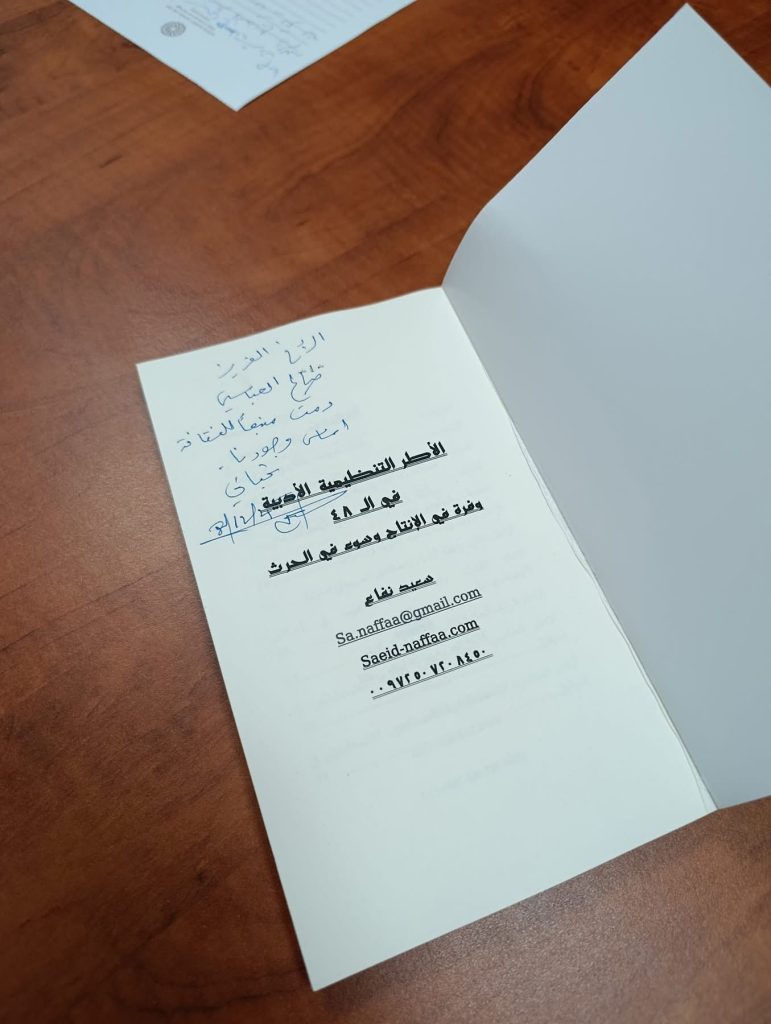 الأخ العزيز
العباسي
دمت منبعاً للثقافة
وجودنا.
تحياتي
الأطر التنظيمية الأدبية
في الـ ٤٨
وفرة في الإنتاج وسوء في الحرث
سعيد نفاع
Sa.naffaa@gmail.com
Saeid-naffaa.com
٠٠٩٧٢٥٠٧٢٠٨٤٥٠